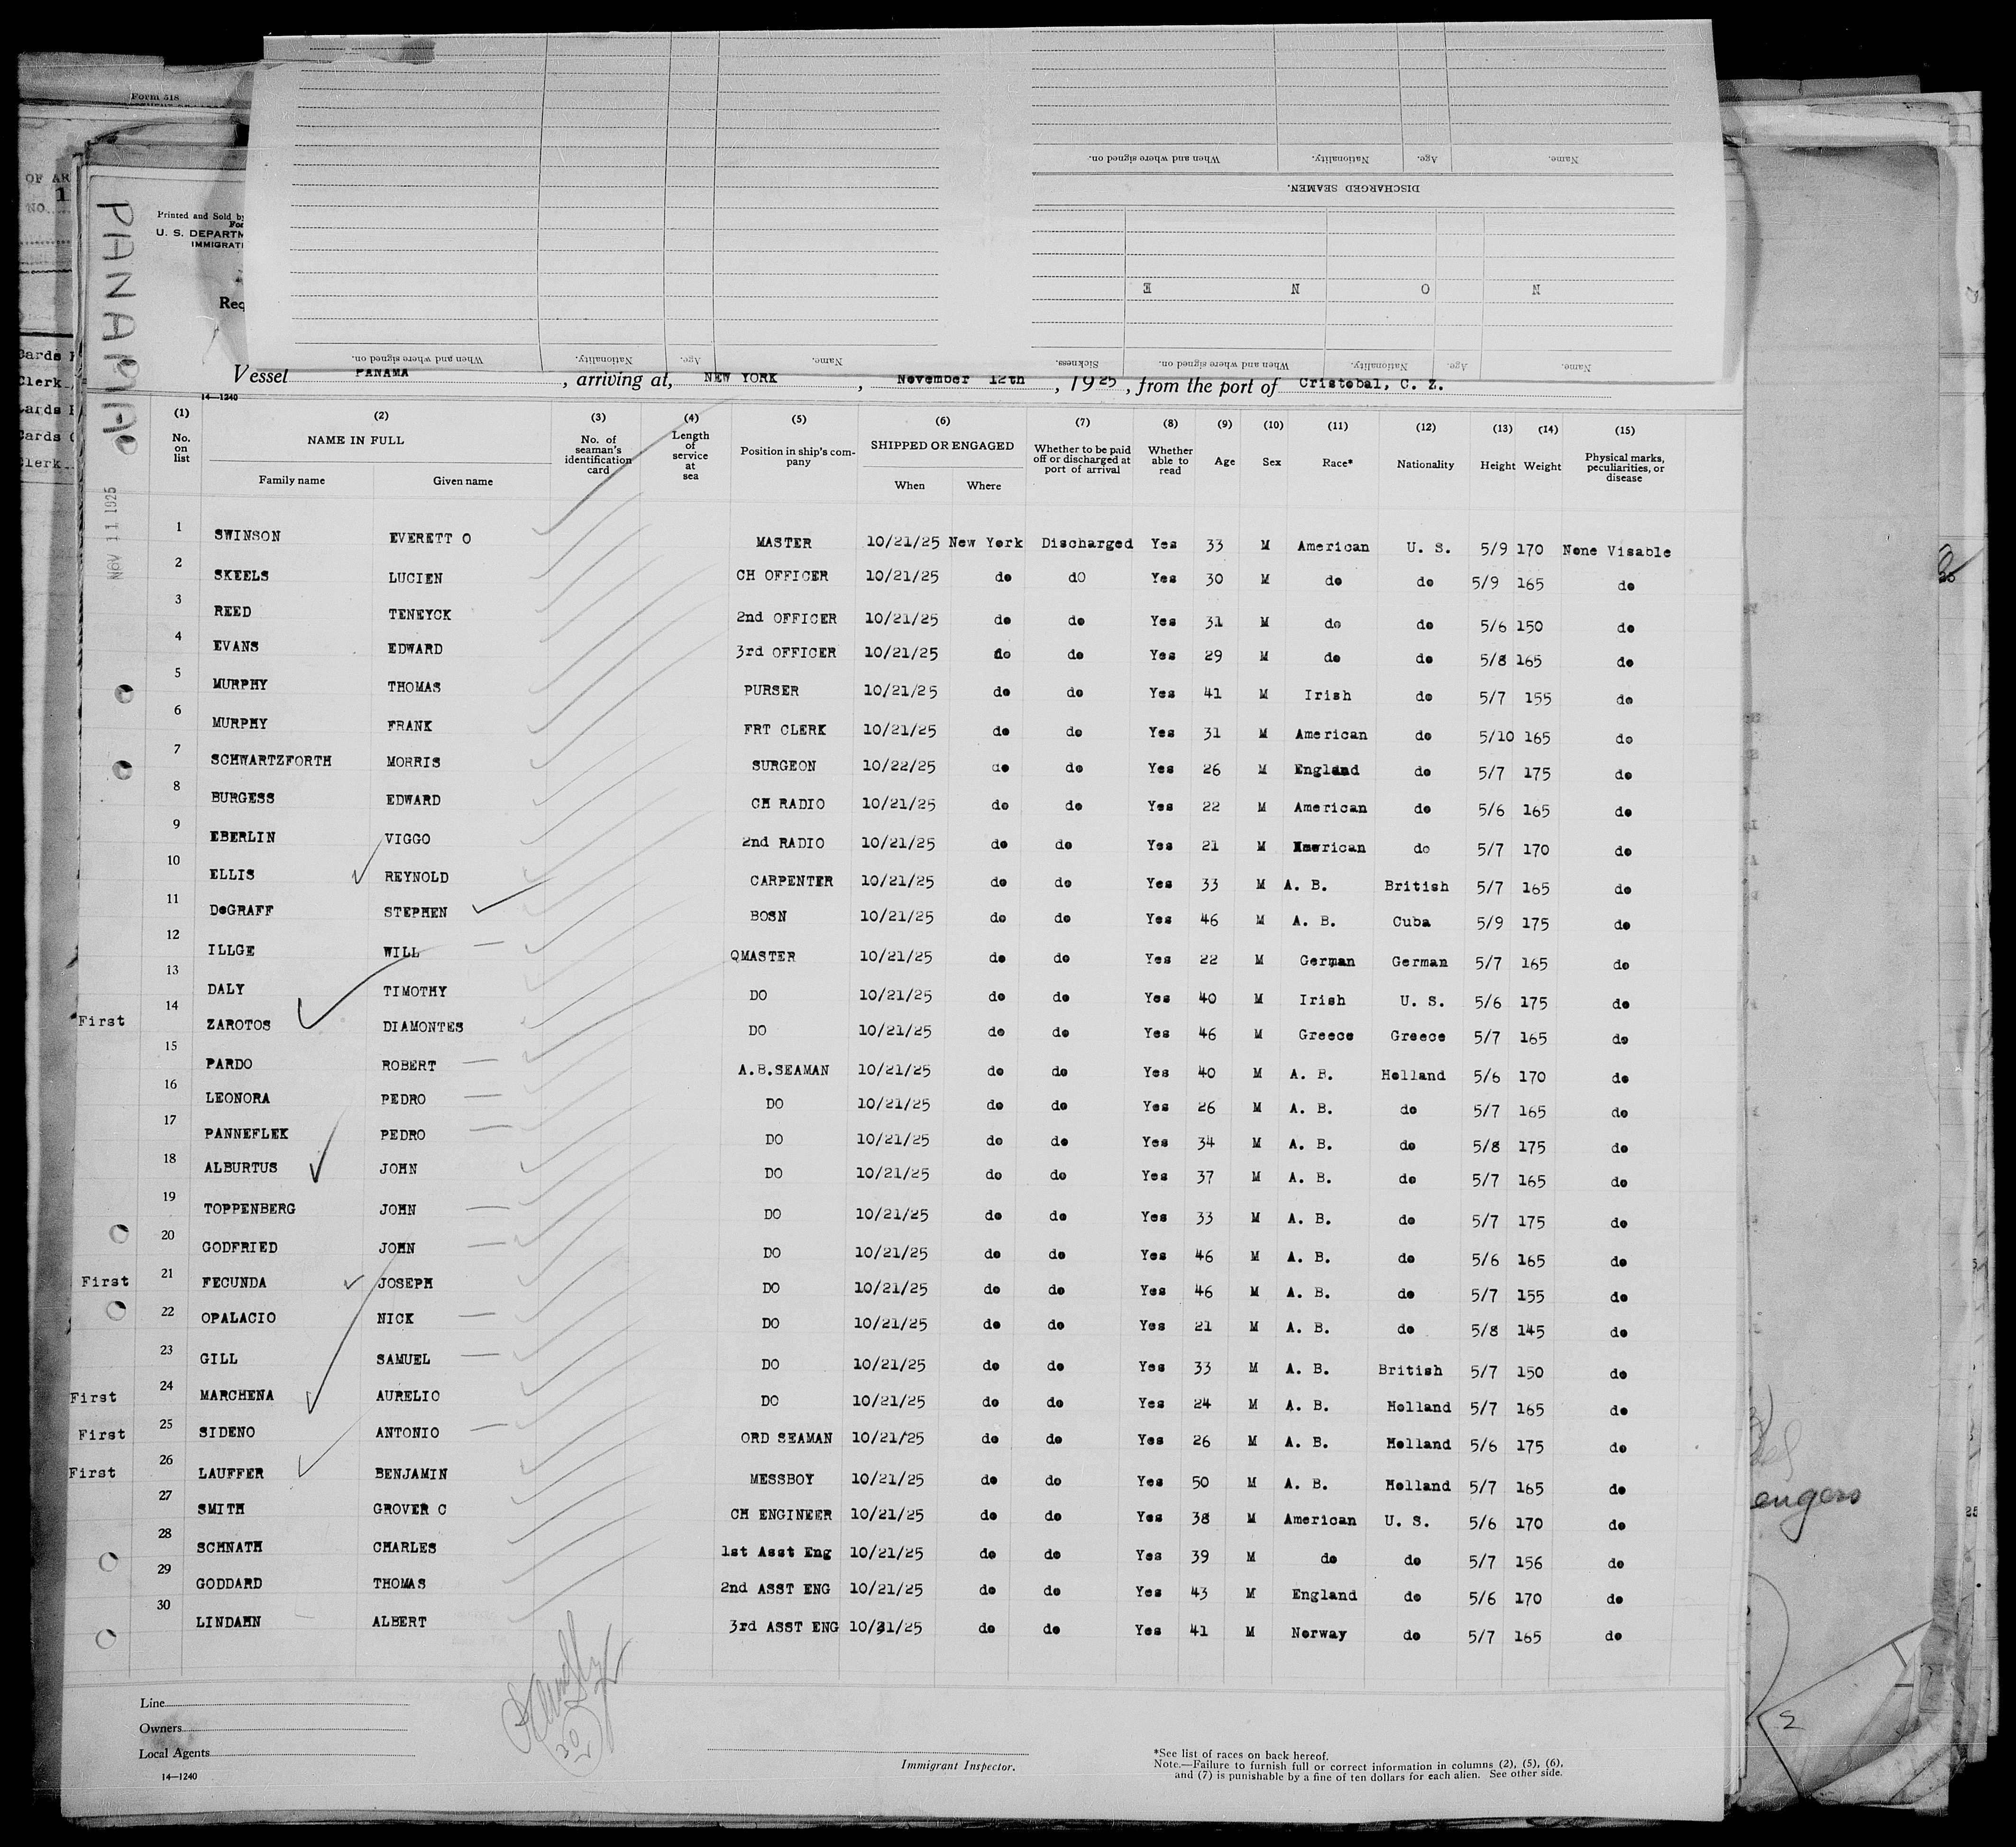 Form 518
OF AR
NO. 1
Cards
Clerk
Cards
Cards
Clerk
PANAMA
NOV 11 1925
Printed and Sold by
U. S. DEPARTM
IMMIGRATI
Req
When and where signed on. Nationality. Age. Name.
DISCHARGED SEAMEN.
N O N E
Name. Age. Nationality. When and where signed on. Sickness.
Name. Age. Nationality. When and where signed on.
Vessel PANAMA, arriving at, NEW YORK, November 12th, 1925, from the port of Cristobal, C. Z.
14—1240
(1) (2) (3) (4) (5) (6) (7) (8) (9) (10) (11) (12) (13) (14) (15)
No. on list NAME IN FULL Family name Given name No. of seaman's identification card Length of service at sea Position in ship's company SHIPPED OR ENGAGED When Where Whether to be paid off or discharged at port of arrival Whether able to read Age Sex Race* Nationality Height Weight Physical marks, peculiarities, or disease
1 SWINSON EVERETT O MASTER 10/21/25 New York Discharged Yes 33 M American U. S. 5/9 170 None Visable
2 SKEELS LUCIEN CH OFFICER 10/21/25 do dO Yes 30 M do do 5/9 165 do
3 REED TENEYCK 2nd OFFICER 10/21/25 do do Yes 31 M do do 5/6 150 do
4 EVANS EDWARD 3rd OFFICER 10/21/25 do do Yes 29 M do do 5/8 165 do
5 MURPHY THOMAS PURSER 10/21/25 do do Yes 41 M Irish do 5/7 155 do
6 MURPHY FRANK FRT CLERK 10/21/25 do do Yes 31 M American do 5/10 165 do
7 SCHWARTZFORTH MORRIS SURGEON 10/22/25 do do Yes 26 M England do 5/7 175 do
8 BURGESS EDWARD CH RADIO 10/21/25 do do Yes 22 M American do 5/6 165 do
9 EBERLIN VIGGO 2nd RADIO 10/21/25 do do Yes 21 M American do 5/7 170 do
10 ELLIS REYNOLD CARPENTER 10/21/25 do do Yes 33 M A. B. British 5/7 165 do
11 DeGRAFF STEPHEN BOSN 10/21/25 do do Yes 46 M A. B. Cuba 5/9 175 do
12 ILLGE WILL QMASTER 10/21/25 do do Yes 22 M German German 5/7 165 do
13 DALY TIMOTHY DO 10/21/25 do do Yes 40 M Irish U. S. 5/6 175 do
First 14 ZAROTOS DIAMONTES DO 10/21/25 do do Yes 46 M Greece Greece 5/7 165 do
15 PARDO ROBERT A.B.SEAMAN 10/21/25 do do Yes 40 M A. B. Holland 5/6 170 do
16 LEONORA PEDRO DO 10/21/25 do do Yes 26 M A. B. do 5/7 165 do
17 PANNEFLEK PEDRO DO 10/21/25 do do Yes 34 M A. B. do 5/8 175 do
18 ALBURTUS JOHN DO 10/21/25 do do Yes 37 M A. B. do 5/7 165 do
19 TOPPENBERG JOHN DO 10/21/25 do do Yes 33 M A. B. do 5/7 175 do
20 GODFRIED JOHN DO 10/21/25 do do Yes 46 M A. B. do 5/6 165 do
First 21 FECUNDA JOSEPH DO 10/21/25 do do Yes 46 M A. B. do 5/7 155 do
22 OPALACIO NICK DO 10/21/25 do do Yes 21 M A. B. do 5/8 145 do
23 GILL SAMUEL DO 10/21/25 do do Yes 33 M A. B. British 5/7 150 do
First 24 MARCHENA AURELIO DO 10/21/25 do do Yes 24 M A. B. Holland 5/7 165 do
First 25 SIDENO ANTONIO ORD SEAMAN 10/21/25 do do Yes 26 M A. B. Holland 5/6 175 do
First 26 LAUFFER BENJAMIN MESSBOY 10/21/25 do do Yes 50 M A. B. Holland 5/7 165 do
27 SMITH GROVER C CH ENGINEER 10/21/25 do do Yes 38 M American U. S. 5/6 170 do
28 SCHNATH CHARLES 1st Asst Eng 10/21/25 do do Yes 39 M do do 5/7 156 do
29 GODDARD THOMAS 2nd ASST ENG 10/21/25 do do Yes 43 M England do 5/6 170 do
30 LINDAHN ALBERT 3rd ASST ENG 10/21/25 do do Yes 41 M Norway do 5/7 165 do
engers
Line
Owners
Local Agents
14—1240
Immigrant Inspector.
*See list of races on back hereof.
Note.—Failure to furnish full or correct information in columns (2), (5), (6),
and (7) is punishable by a fine of ten dollars for each alien. See other side.